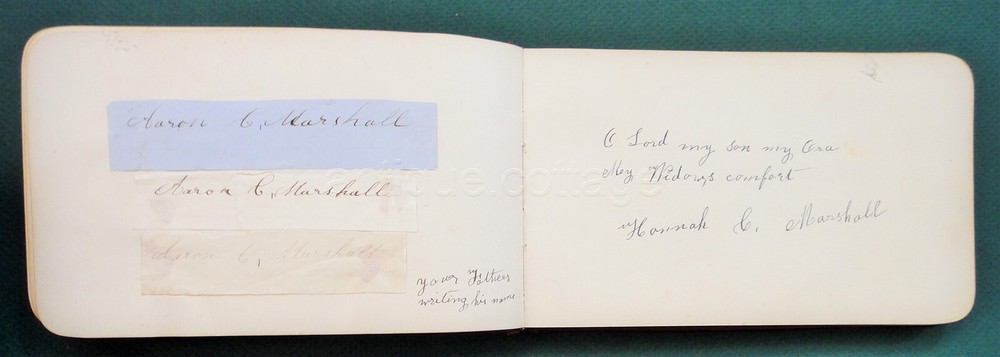 Aaron C. Marshall
Aaron C. Marshall
Aaron C. Marshall
your Fathers
writing his name
O Lord my son my Ora
My Widows comfort
Hannah C. Marshall
antique.cottage